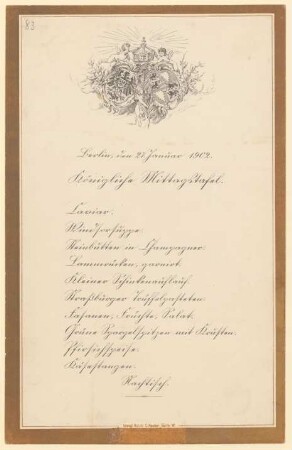 83
Berlin, den 25. Januar 1902.
Königliche Mittagstafel.
Caviar.
Windsorsuppe
Steinbutten in Champagner
Lammrücken, garnirt.
Kleiner Schinkenauflauf.
Straßburger Trüffelpasteten.
Fasanen, Früchte, Salat.
Grüne Spargelspitzen mit Krusten.
Pfirsichspeise.
Käsestangen.
Nachtisch.